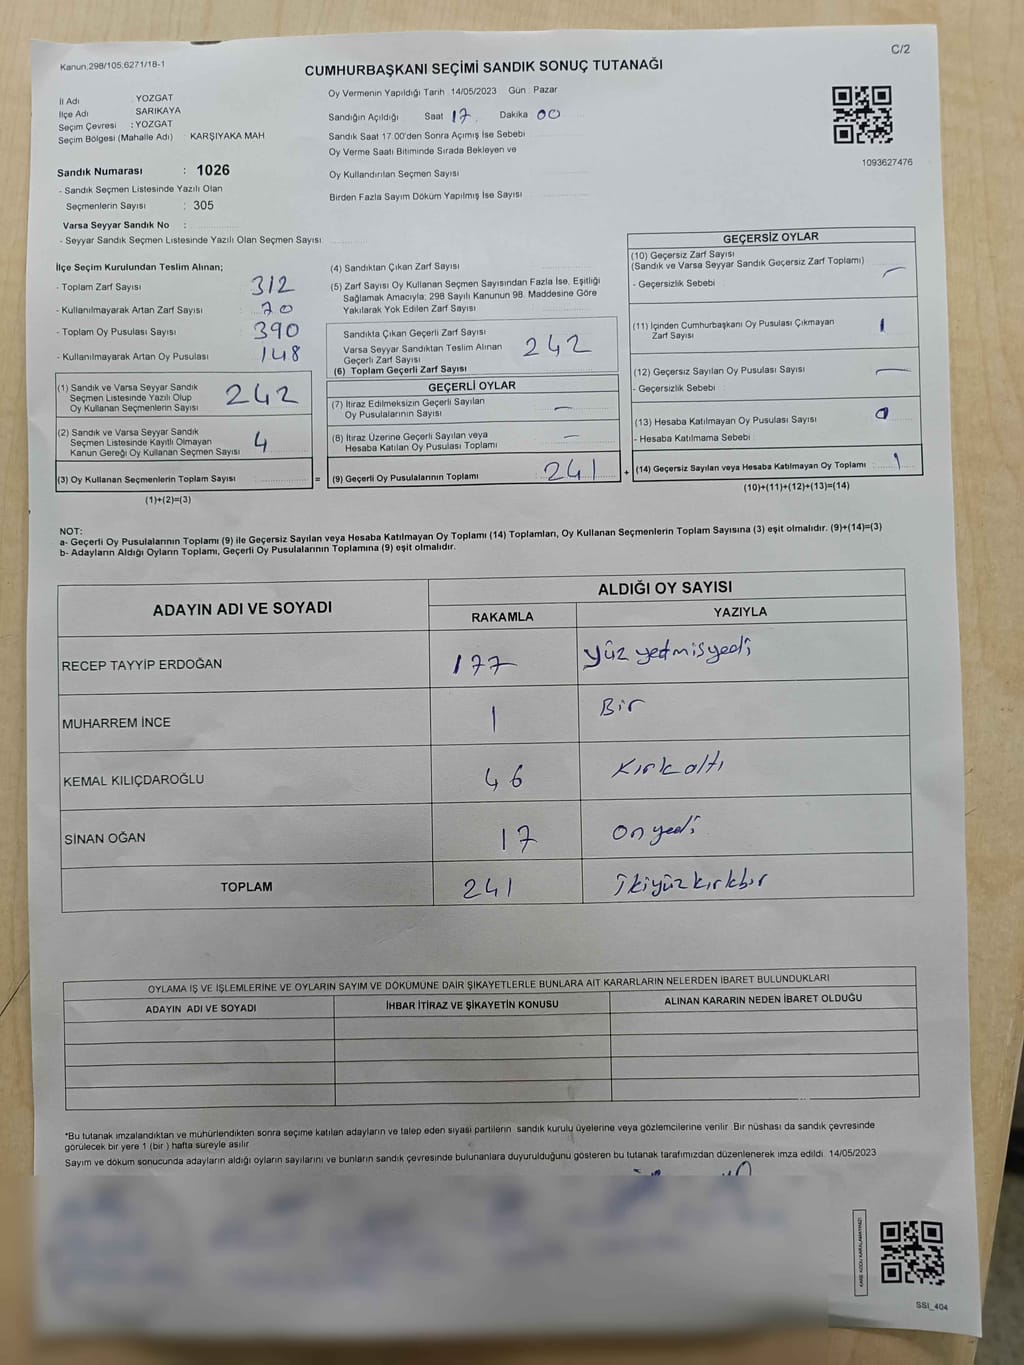 Kanun,298/105,6271/18-1
C/2
CUMHURBAŞKANI SEÇİMİ SANDIK SONUÇ TUTANAĞI
İl Adı : YOZGAT
İlçe Adı SARIKAYA
Seçim Çevresi : YOZGAT
Seçim Bölgesi (Mahalle Adı) KARŞIYAKA MAH
Oy Vermenin Yapıldığı Tarih 14/05/2023 Gün Pazar
Sandığın Açıldığı Saat 17 Dakika 00
Sandık Saat 17.00'den Sonra Açımış İse Sebebi
Oy Verme Saati Bitiminde Sırada Bekleyen ve
Oy Kullandırılan Seçmen Sayısı
Birden Fazla Sayım Döküm Yapılmış İse Sayısı
1093627476
Sandık Numarası : 1026
- Sandık Seçmen Listesinde Yazılı Olan
Seçmenlerin Sayısı : 305
Varsa Seyyar Sandık No :
- Seyyar Sandık Seçmen Listesinde Yazılı Olan Seçmen Sayısı
İlçe Seçim Kurulundan Teslim Alınan;
- Toplam Zarf Sayısı 312
- Kullanılmayarak Artan Zarf Sayısı 70
- Toplam Oy Pusulası Sayısı 390
- Kullanılmayarak Artan Oy Pusulası 148
(1) Sandık ve Varsa Seyyar Sandık
Seçmen Listesinde Yazılı Olup
Oy Kullanan Seçmenlerin Sayısı 242
(2) Sandık ve Varsa Seyyar Sandık
Seçmen Listesinde Kayıtlı Olmayan
Kanun Gereği Oy Kullanan Seçmen Sayısı 4
(3) Oy Kullanan Seçmenlerin Toplam Sayısı =
(1)+(2)=(3)
(4) Sandıktan Çıkan Zarf Sayısı
(5) Zarf Sayısı Oy Kullanan Seçmen Sayısından Fazla İse, Eşitliği
Sağlamak Amacıyla; 298 Sayılı Kanunun 98. Maddesine Göre
Yakılarak Yok Edilen Zarf Sayısı
Sandıkta Çıkan Geçerli Zarf Sayısı
Varsa Seyyar Sandıktan Teslim Alınan
Geçerli Zarf Sayısı
(6) Toplam Geçerli Zarf Sayısı 242
GEÇERLİ OYLAR
(7) İtiraz Edilmeksizin Geçerli Sayılan
Oy Pusulalarının Sayısı —
(8) İtiraz Üzerine Geçerli Sayılan veya
Hesaba Katılan Oy Pusulası Toplamı —
(9) Geçerli Oy Pusulalarının Toplamı 241 +
GEÇERSİZ OYLAR
(10) Geçersiz Zarf Sayısı
(Sandık ve Varsa Seyyar Sandık Geçersiz Zarf Toplamı) —
- Geçersizlik Sebebi
(11) İçinden Cumhurbaşkanı Oy Pusulası Çıkmayan
Zarf Sayısı 1
(12) Geçersiz Sayılan Oy Pusulası Sayısı —
- Geçersizlik Sebebi
(13) Hesaba Katılmayan Oy Pusulası Sayısı 0
- Hesaba Katılmama Sebebi
(14) Geçersiz Sayılan veya Hesaba Katılmayan Oy Toplamı 1
(10)+(11)+(12)+(13)=(14)
NOT:
a- Geçerli Oy Pusulalarının Toplamı (9) ile Geçersiz Sayılan veya Hesaba Katılmayan Oy Toplamı (14) Toplamları, Oy Kullanan Seçmenlerin Toplam Sayısına (3) eşit olmalıdır. (9)+(14)=(3)
b- Adayların Aldığı Oyların Toplamı, Geçerli Oy Pusulalarının Toplamına (9) eşit olmalıdır.
ADAYIN ADI VE SOYADI ALDIĞI OY SAYISI
RAKAMLA YAZIYLA
RECEP TAYYİP ERDOĞAN 177 yüz yetmişyedi
MUHARREM İNCE 1 Bir
KEMAL KILIÇDAROĞLU 46 Kırkaltı
SİNAN OĞAN 17 Onyedi
TOPLAM 241 İkiyüzkırkbir
OYLAMA İŞ VE İŞLEMLERİNE VE OYLARIN SAYIM VE DÖKÜMÜNE DAİR ŞİKAYETLERLE BUNLARA AİT KARARLARIN NELERDEN İBARET BULUNDUKLARI
ADAYIN ADI VE SOYADI İHBAR İTİRAZ VE ŞİKAYETİN KONUSU ALINAN KARARIN NEDEN İBARET OLDUĞU
*Bu tutanak imzalandıktan ve mühürlendikten sonra seçime katılan adayların ve talep eden siyasi partilerin sandık kurulu üyelerine veya gözlemcilerine verilir. Bir nüshası da sandık çevresinde
görülecek bir yere 1 (bir) hafta süreyle asılır
Sayım ve döküm sonucunda adayların aldığı oyların sayılarını ve bunların sandık çevresinde bulunanlara duyurulduğunu gösteren bu tutanak tarafımızdan düzenlenerek imza edildi. 14/05/2023
KARE KODU KARALAMAYINIZ!
SSI_404